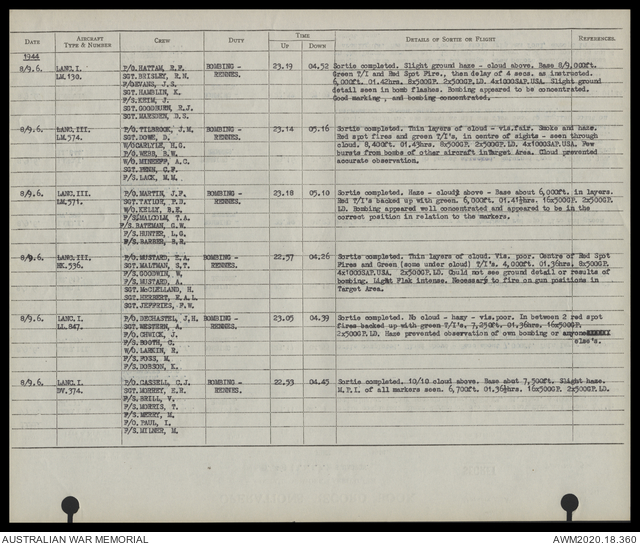 DATE AIRCRAFT TYPE & NUMBER CREW DUTY TIME UP DOWN DETAILS OF SORTIE OR FLIGHT REFERENCES.
1944
8/9.6. LANC.I. P/O. HATTAM, R.F. BOMBING - 23.19 04.52 Sortie completed. Slight ground haze - cloud above. Base 8/9,000ft.
LM.130. SGT. BRISLEY, R.N. RENNES. Green T/I and Red Spot Fire., then delay of 4 secs. as instructed.
F/O EVANS, J.S. 6,000ft. 01.42hrs. 8x500GP. 2x500GP.LD. 4x1000SAP.USA. Slight ground
SGT. HAMBLIN, K. detail seen in bomb flashes. Bombing appeared to be concentrated.
F/S. KEIM, J. Good marking, and bombing concentrated.
SGT. GOODBURN, R.J.
SGT. MARSDEN, D.S.
8/9.6. LANC.III. P/O. TILBROOK, J.M. BOMBING - 23.14 05.16 Sortie completed. Thin layers of cloud - vis.fair. Smoke and haze.
LM.574. SGT. LOWE, D. RENNES. Red spot fires and green T/I's, in centre of sights - seen through
W/O CARLYLE, H.G. cloud. 8,400ft. 01.43hrs. 8x500GP. 2x500GP.LD. 4x1000SAP.USA. Few
P/O. WEBB, B.W. bursts from bombs of other aircraft in Target Area. Cloud prevented
W/O. MINERFF, A.C. accurate observation.
SGT. PENN, C.F.
F/S. LACK, M.M.
8/9.6. LANC.III. P/O. MARTIN, J.F. BOMBING - 23.18 05.10 Sortie completed. Haze - cloud above - Base about 6,000ft. in layers.
LM.571. SGT. TAYLOR, P.D. RENNES. Red T/I's backed up with green. 6,000ft. 01.41½hrs. 16x500GP. 2x500GP.
W/O. KELLY, B.E. LD. Bombing appeared well concentrated and appeared to be in the
F/S. MALCOLM, T.A. correct position in relation to the markers.
F/S. BATEMAN, G.W.
F/S. HUNTER, L.G.
F/S. BARBER, B.R.
8/9.6. LANC.III. P/O. MUSTARD, E.A. BOMBING - 22.57 04.26 Sortie completed. Thin layers of cloud. Vis. poor. Centre of Red Spot
NK.536. SGT. MALTMAN, S.T. RENNES. Fires and Green (some under cloud) T/I's. 4,000ft. 01.36hrs. 8x500GP.
F/S. GOODWIN, W. 4x1000SAP.USA. 2x500GP.LD. Could not see ground detail or results of
F/S. MUSTARD, A. bombing. Light Flak intense. Necessary to fire on gun positions in
SGT. McCLELLAND, H. Target Area.
SGT. HERBERT, E.A.L.
SGT. JEFFRIES, F.W.
8/9.6. LANC.I. P/O. BECHASTEL, J.H. BOMBING - 23.05 04.39 Sortie completed. No cloud - hazy - vis.poor. In between 2 red spot
LL.847. SGT. WESTERN, A. RENNES. fires backed up with green T/I's. 7,250ft. 01.36hrs. 16x500GP.
F/O. CHWICK, J. 2x500GP.LD. Haze prevented observation of own bombing or anyone
F/S. BOOTH, C. else's.
W/O. LARKIN, R.
F/S. FOSS, M.
F/S. DOBSON, K.
8/9.6. LANC.I. P/O. CASSELL, C.J. BOMBING - 22.53 04.45 Sortie completed. 10/10 cloud above. Base abut 7,500ft. Slight haze.
DV.374. SGT. MORREY, E.R. RENNES. M.P.I. of all markers seen. 6,700ft. 01.36½hrs. 16x500GP. 2x500GP.LD.
F/S. BRILL, V.
F/S. MORRIS, T.
F/S. MERRY, M.
F/O. PAUL, I.
F/S. MILNER, M.
AUSTRALIAN WAR MEMORIAL AWM2020.18.360